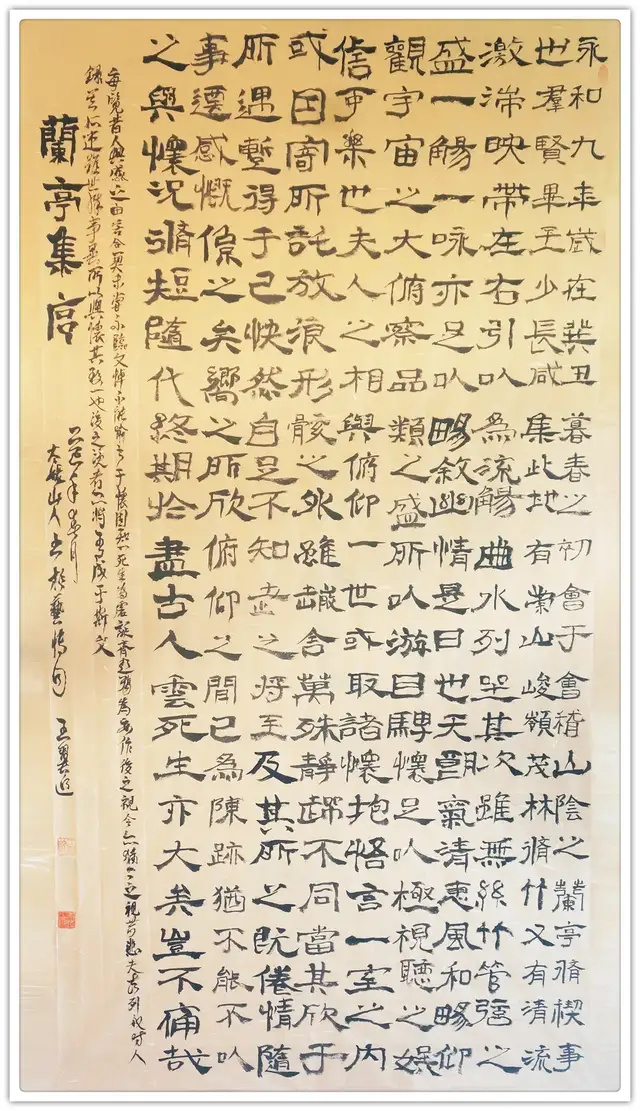 永和九年歲在癸丑暮春之初會于會稽山陰之蘭亭脩稧事
也羣賢畢至少長咸集此地有崇山峻領茂林脩竹又有清流
激湍映帶左右引以為流觴曲水列坐其次雖無絲竹管弦之
盛一觴一詠亦足以暢敘幽情是日也天朗氣清惠風和暢仰
觀宇宙之大俯察品類之盛所以游目騁懷足以極視聽之娛
信可樂也夫人之相與俯仰一世或取諸懷抱悟言一室之內
或因寄所託放浪形骸之外雖趣舍萬殊靜躁不同當其欣于
所遇暫得于己快然自足不知老之將至及其所之既倦情隨
事遷感慨係之矣嚮之所欣俯仰之間已為陳跡猶不能不以
之興懷況脩短隨代終期於盡古人雲死生亦大矣豈不痛哉
每覽昔人興感之由若合契未嘗不臨文悼不能喻之于懷固知死生為虛誕齊彭殤為妄作後之視今亦猶今之視昔悲夫故列敘時人
錄其所述雖世殊事異所以興懷其致一也後之覽者亦將有感于斯文
蘭亭集序
乙巳年月
山人書於藝園 王翼